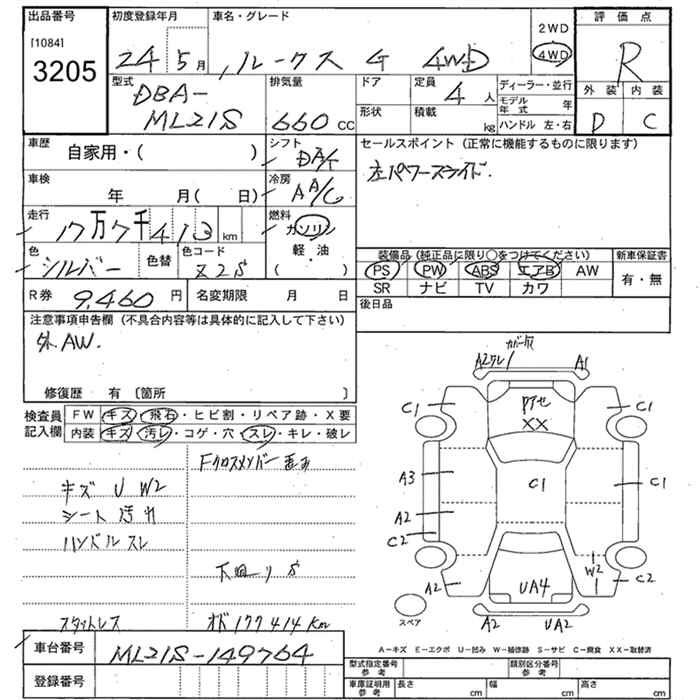 出品番号
[1084]
3205
初度登録年月
24年5月
車名・グレード
ルークス G 4WD
2WD
4WD
評価点
R
外装 内装
D C
型式
DBA-
ML21S
排気量
660cc
ドア
形状
定員
4人
積載
kg
ディーラー・並行
モデル年式 年
ハンドル 左・右
車歴
自家用・( )
シフト
DA/T
セールスポイント(正常に機能するものに限ります)
左パワースライド.
車検
年 月( 日)
冷房
AA/C
走行
17万7千413km
燃料
ガソリン
軽・油
・
( )
色
シルバー
色替
色コード
Z2S
装備品(純正品に限り○をつけてください)
PS PW ABS エアB AW
SR ナビ TV カワ
新車保証書
有・無
R券 9,460円
名変期限 月 日
後日品
注意事項申告欄(不具合内容等は具体的に記入して下さい)
外AW.
修復歴 有〔箇所 〕
検査員
記入欄
FW キズ・飛石・ヒビ割・リペア跡・X要
内装 キズ・汚レ・コゲ・穴・スレ・キレ・破レ
Fクロスメンバー
キズ U W2
シート汚れ
ハンドルスレ
下回りS
スタットレス
オド177414Km
車台番号
ML21S-149764
登録番号
カバー欠
A2ワレ
A1
C1
C1
XX
A3
C1
C1
A2
C2
W2
A2
C2
UA4
スペア
A2
UA2
A-キズ E-エクボ U-凹み W-補修跡 S-サビ C-腐食 XX-取替済
型式指定番号
参考
類別区分番号
参考
車庫証明用
参考
長さ cm
幅 cm
高さ cm